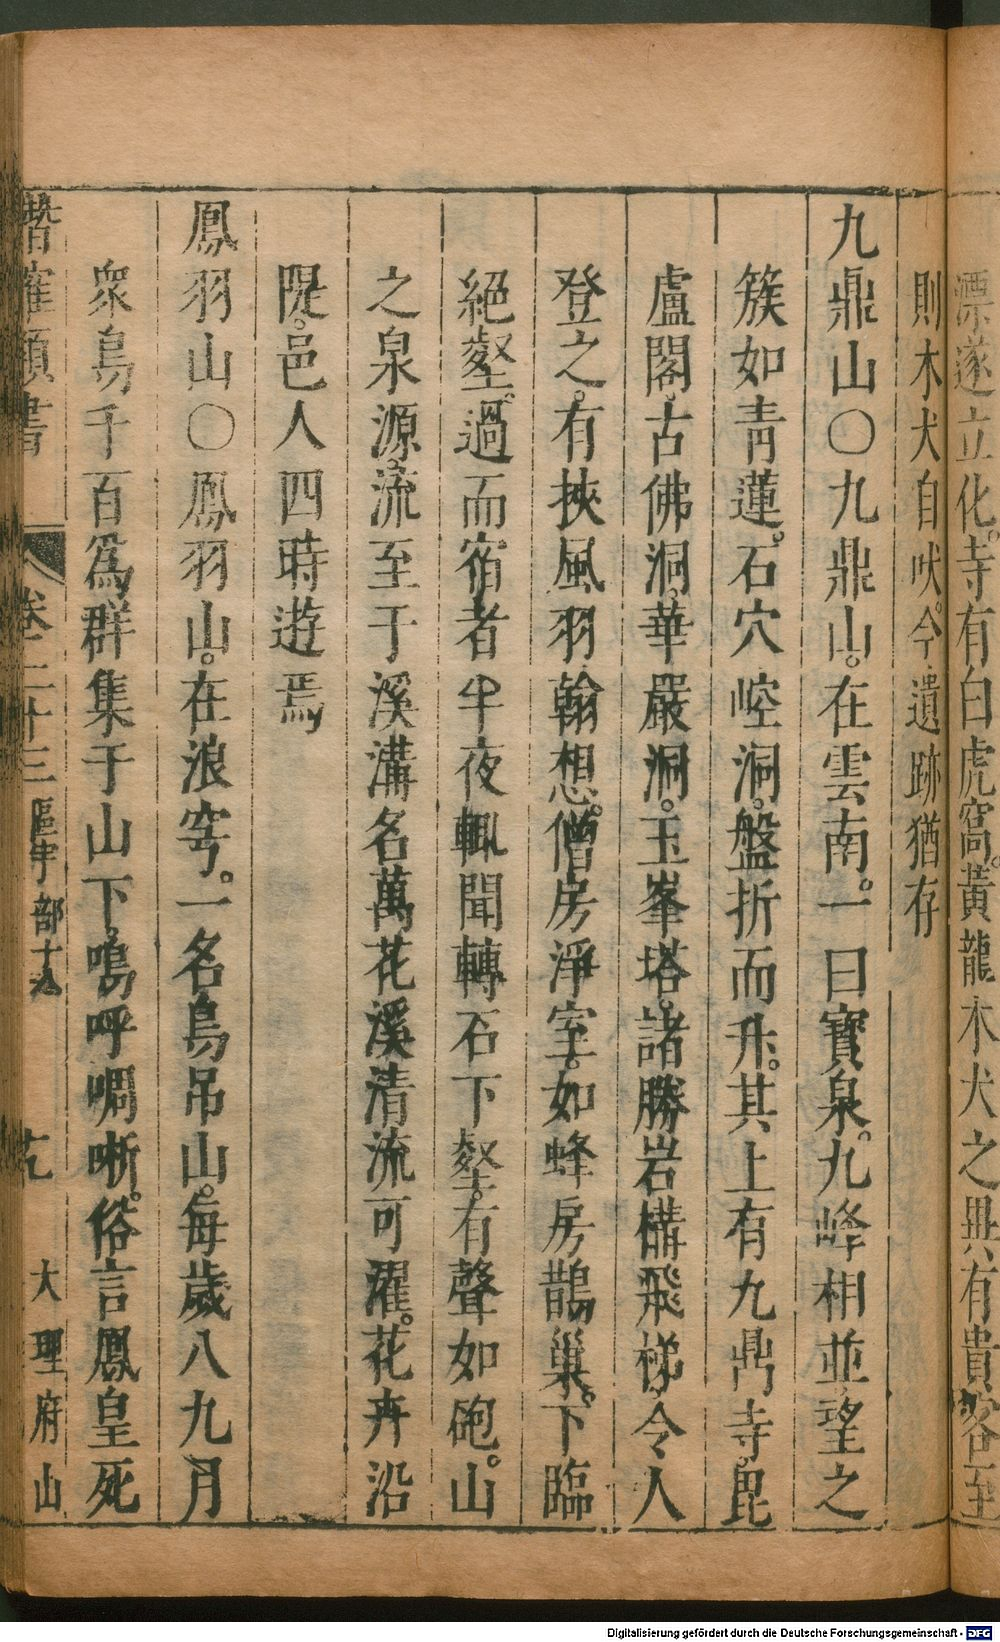 漂遂立化。寺有白虎窩。黃龍木犬之異有貴客至
則木犬自吠。今遺跡猶存
九鼎山〇九鼎山。在雲南。一曰寶泉。九峰相並望之
簇如靑蓮。石穴崆洞。盤折而升。其上有九鼎寺。毘
盧閣。古佛洞。華嚴洞。玉峯塔。諸勝岩構飛梯。令人
登之。有挾風羽翰想。僧房淨室。如蜂房鵲巢。下臨
絕壑。過而宿者半夜輒聞轉石下壑。有聲如砲。山
之泉源。流至于溪溝名萬花溪清流可濯。花卉沿
隄。邑人四時遊焉
鳳羽山〇鳳羽山。在浪穹。一名鳥吊山。每歲八九月
衆鳥千百爲群集于山下。鳴呼啁哳。俗言鳳皇死
卷二十三 區宇部十八 大理府山
Digitalisierung gefördert durch die Deutsche Forschungsgemeinschaft - DFG